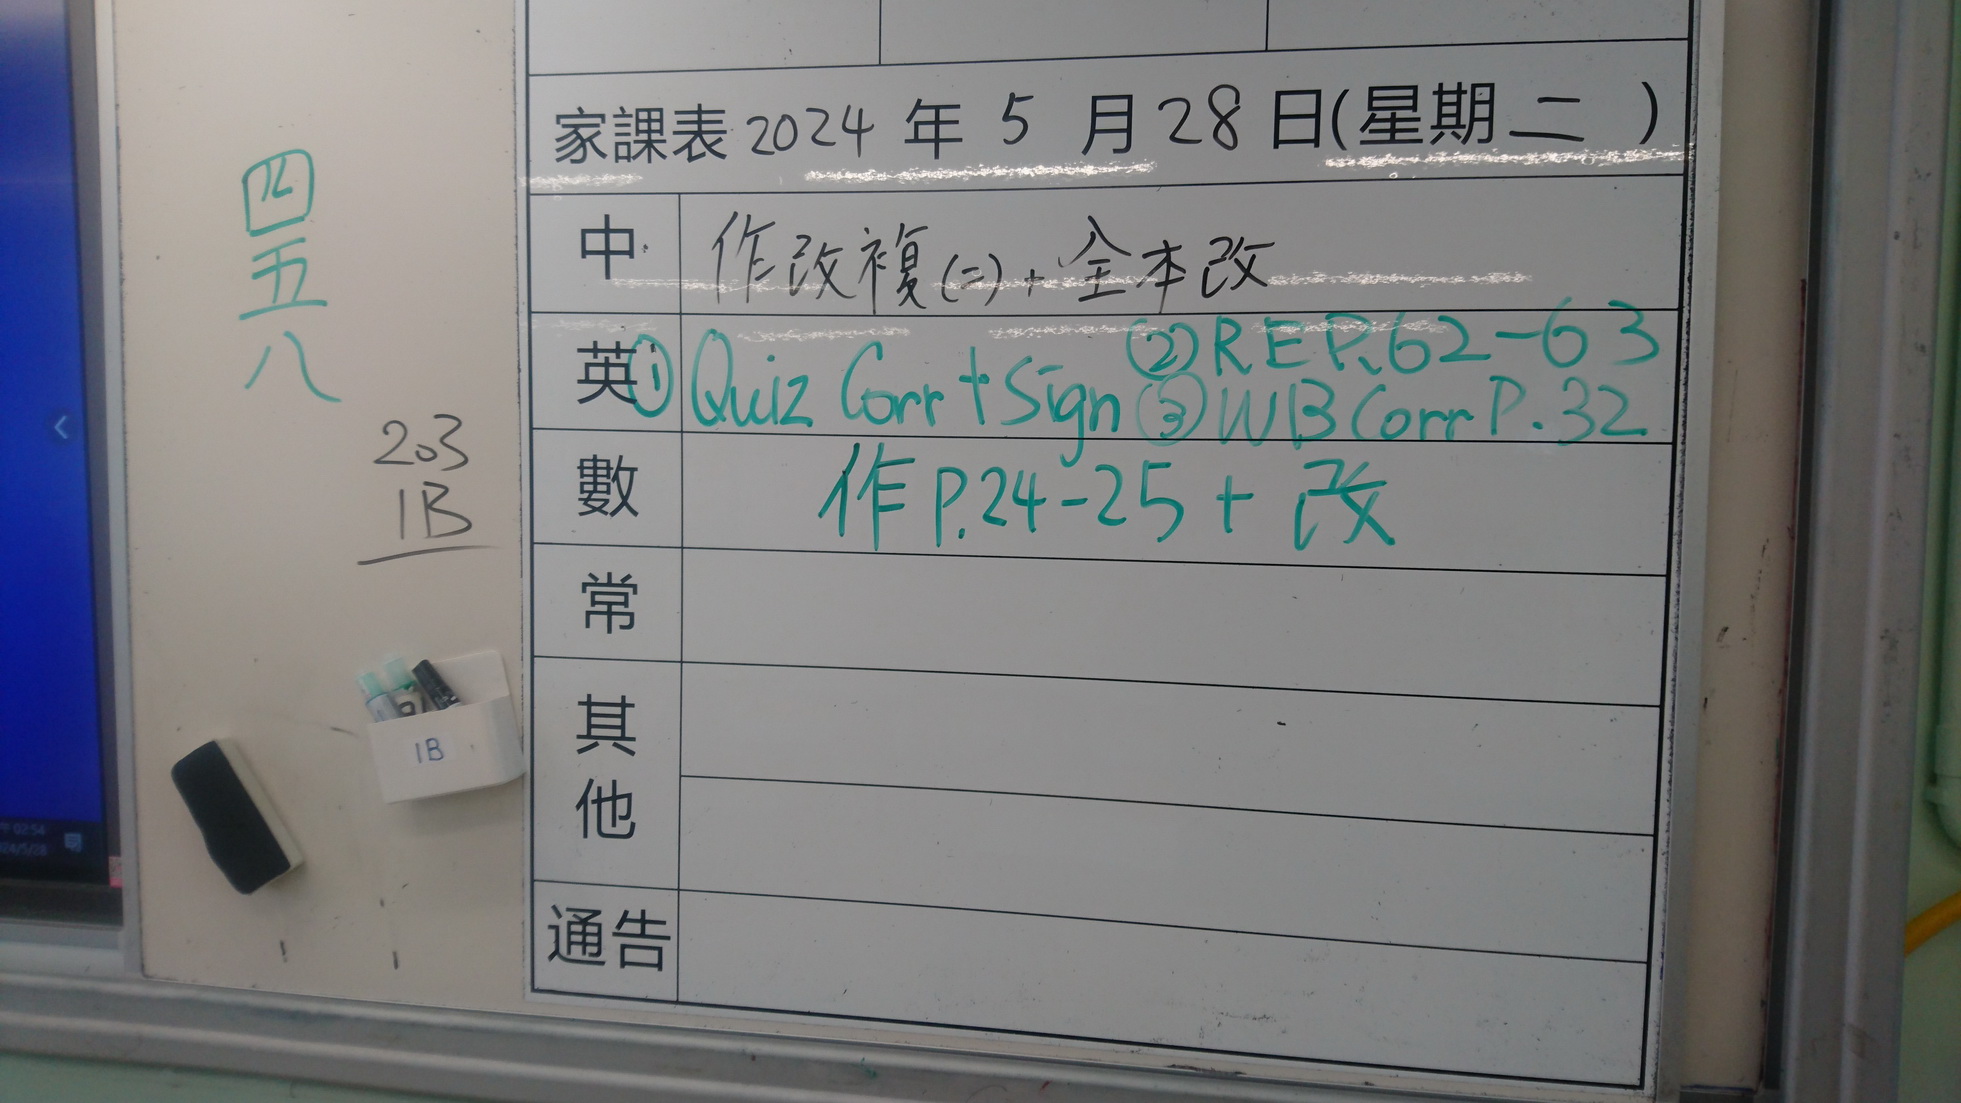 四
五
八
203
1B
1B
家課表 2024 年 5 月 28 日(星期 二 )
中 作改複(二)+全本改
英 ① Quiz Corr + Sign ② RE P.62-63
③ WB Corr P.32
數 作 P.24-25 + 改
常
其
他
通告
02:54
24/5/28